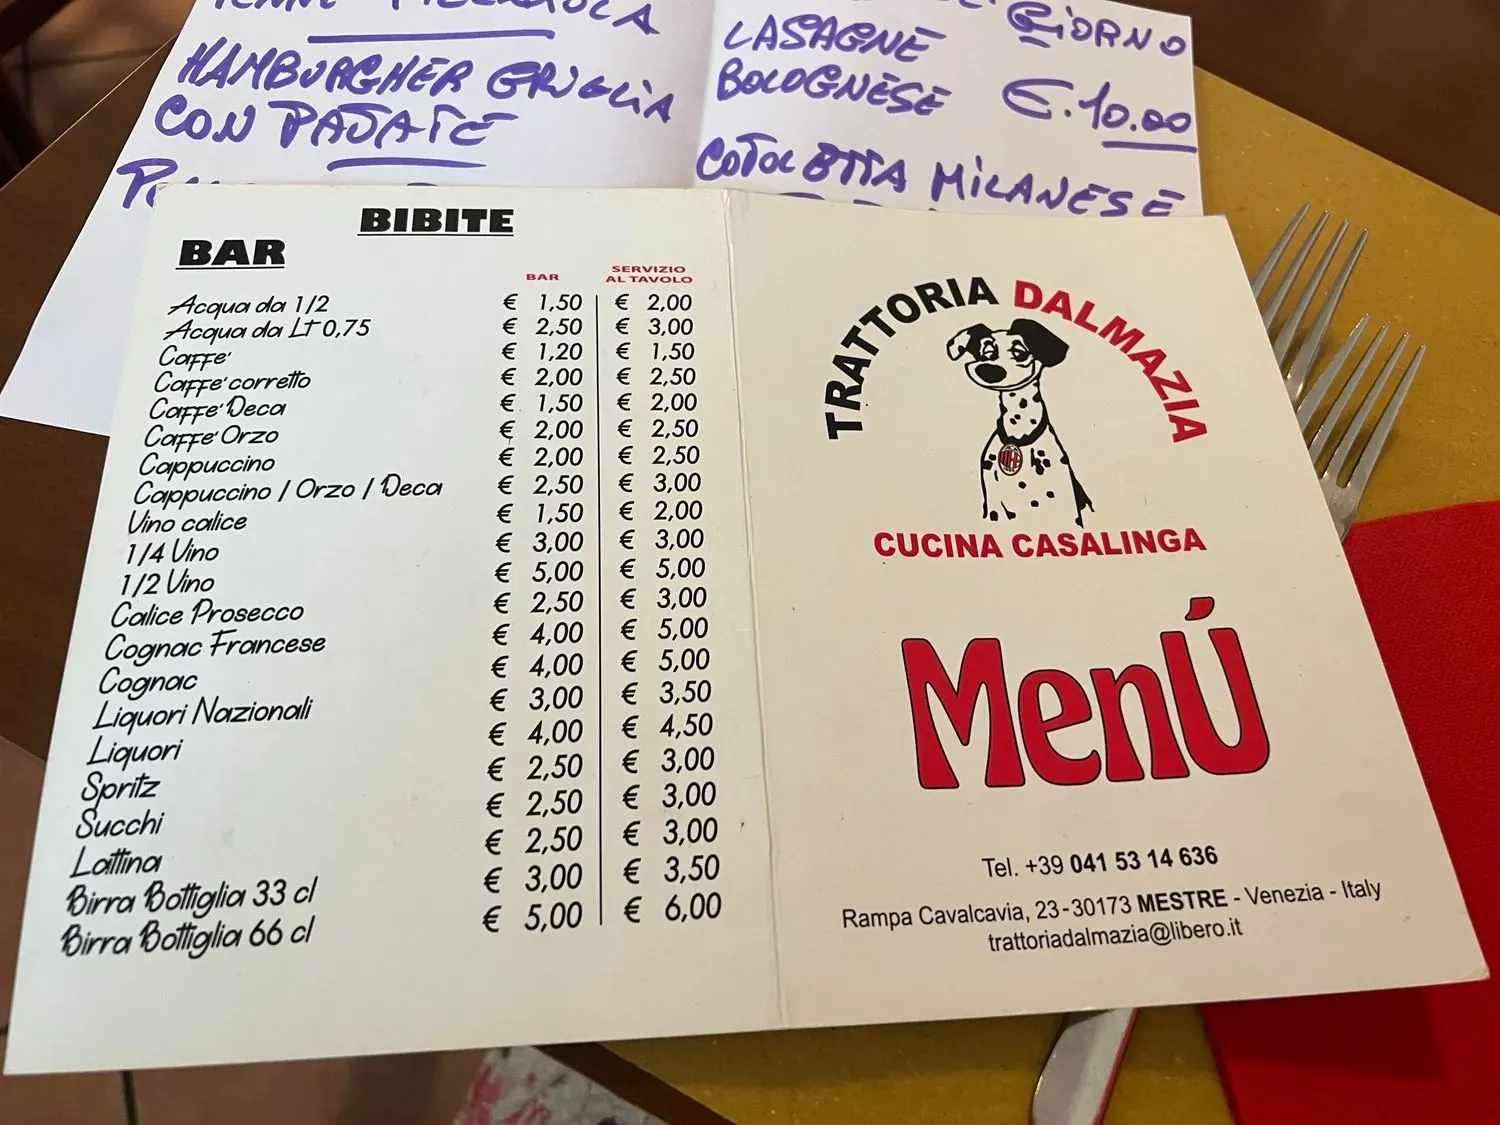 HAMBURGHER GRIGLIA
CON PATATE
GIORNO
LASAGNE
BOLOGNESE €.10.00
COTOLETTA MILANESE
BIBITE
BAR
BAR SERVIZIO AL TAVOLO
Acqua da 1/2 € 1,50 € 2,00
Acqua da Lt 0,75 € 2,50 € 3,00
Caffe' € 1,20 € 1,50
Caffe' corretto € 2,00 € 2,50
Caffe' Deca € 1,50 € 2,00
Caffe' Orzo € 2,00 € 2,50
Cappuccino € 2,00 € 2,50
Cappuccino / Orzo / Deca € 2,50 € 3,00
Vino calice € 1,50 € 2,00
1/4 Vino € 3,00 € 3,00
1/2 Vino € 5,00 € 5,00
Calice Prosecco € 2,50 € 3,00
Cognac Francese € 4,00 € 5,00
Cognac € 4,00 € 5,00
Liquori Nazionali € 3,00 € 3,50
Liquori € 4,00 € 4,50
Spritz € 2,50 € 3,00
Succhi € 2,50 € 3,00
Lattina € 2,50 € 3,00
Birra Bottiglia 33 cl € 3,00 € 3,50
Birra Bottiglia 66 cl € 5,00 € 6,00
TRATTORIA DALMAZIA
CUCINA CASALINGA
MenÚ
Tel. +39 041 53 14 636
Rampa Cavalcavia, 23-30173 MESTRE - Venezia - Italy
trattoriadalmazia@libero.it